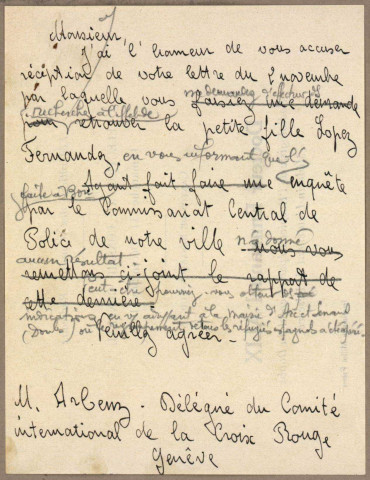 Monsieur,
J'ai l'honneur de vous accuser
réception de votre lettre du 2 novembre
par laquelle vous faisiez une demande
me demandez d'effectuer des
recherches à l'effet de
pour retrouver la petite fille Lopez
Fernandez, en vous informant que l'
Ayant fait faire une enquête
faite à
par le Commissariat Central de
Police de notre ville nous vous
n'a donné
aucun résultat.
remettons ci-joint le rapport de
cette dernière.
peut-être pourriez-vous obtenir
indications en vous adressant à la mairie d'Arc et Senans
(Doubs) où le regroupement de tous les réfugiés espagnols a été opéré.
Veuillez agréer.
M. Arbenz - Délégué du Comité
international de la Croix Rouge
Genève